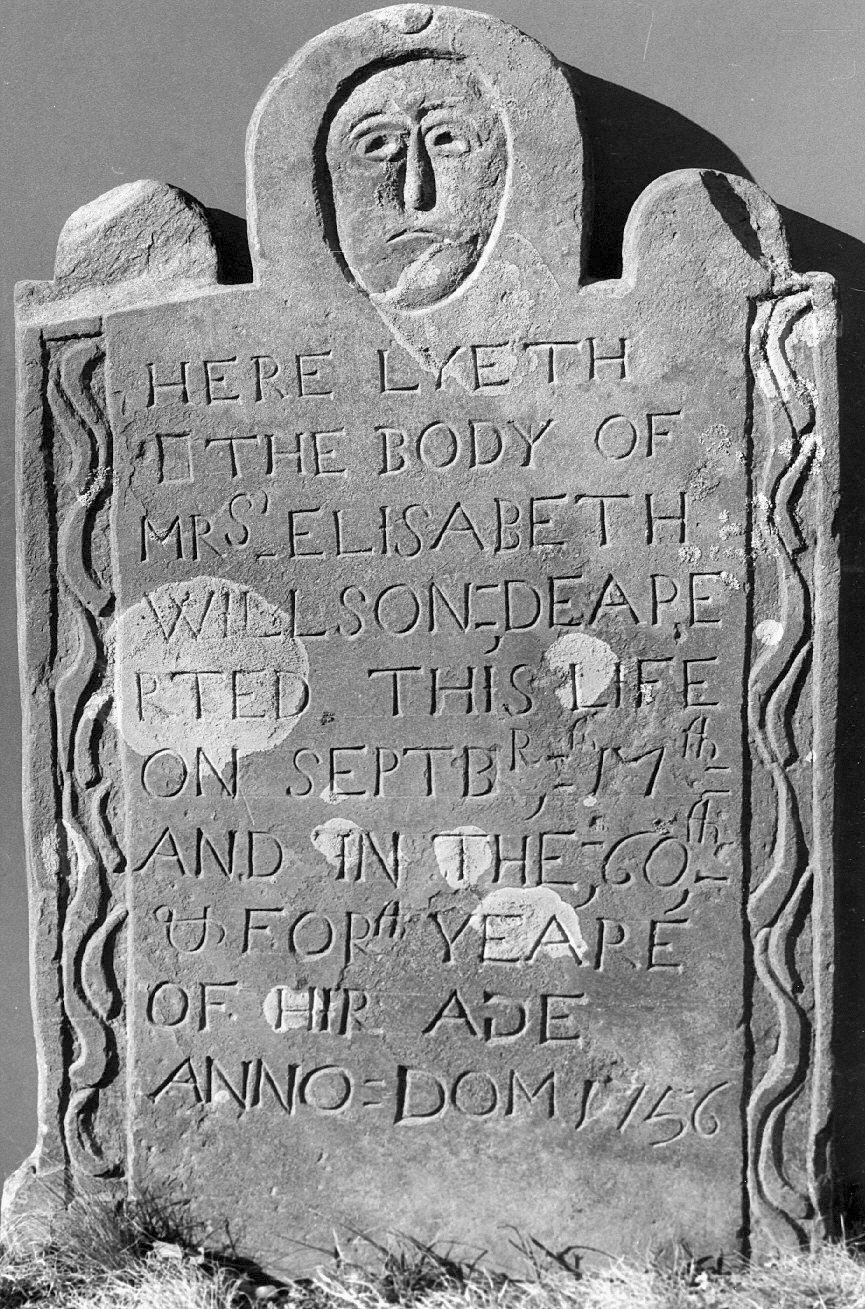 HERE LYETH
THE BODY OF
MRS' ELISABETH
WILLSON=;DEAPE
RTED THIS LIFE
ON SEPTBR=; 17th
AND IN THE=;60th
& FORth YEARE
OF HIR AJE
ANNO=DOM 1756